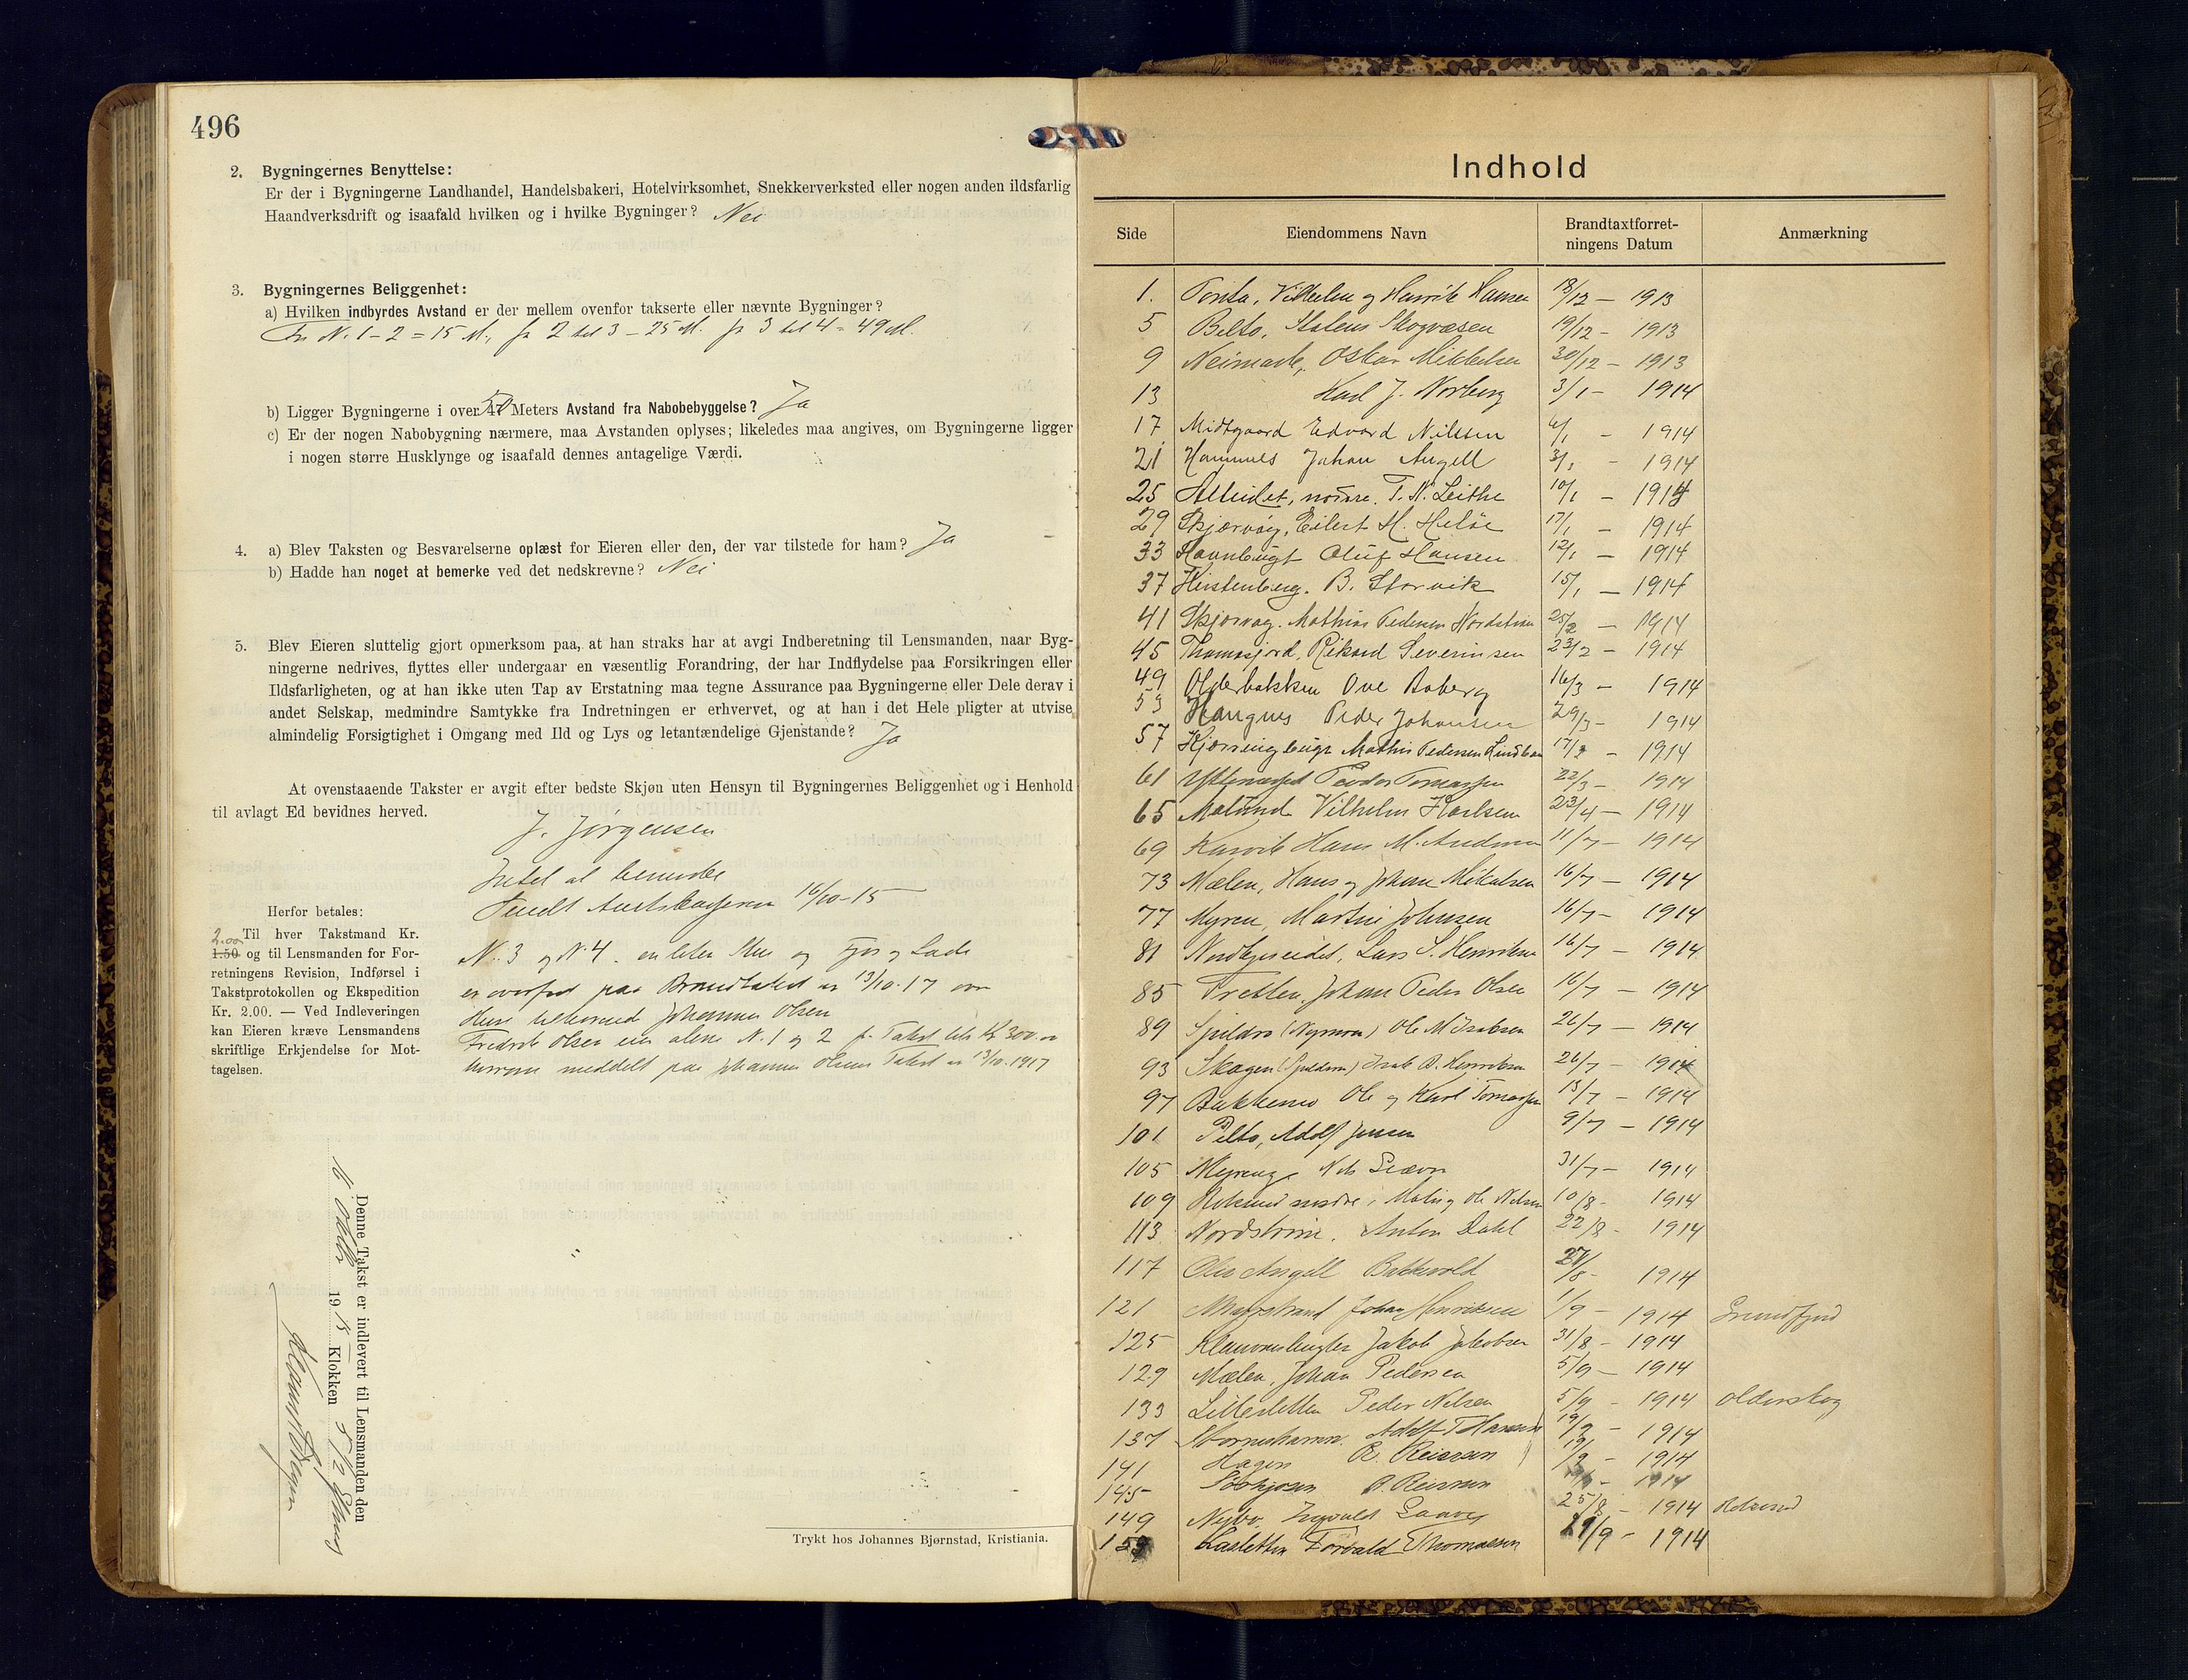 496
2. Bygningernes Benyttelse:
Er der i Bygningerne Landhandel, Handelsbakeri, Hotelvirksomhet, Snekkerverksted eller nogen anden ildsfarlig
Haandverksdrift og isaafald hvilken og i hvilke Bygninger? Nei
3. Bygningernes Beliggenhet:
a) Hvilken indbyrdes Avstand er der mellem ovenfor takserte eller nævnte Bygninger?
Fra N. 1 - 2 = 15 M., fr 2 til 3 - 25 M. fr 3 til 4 = 49 M.
b) Ligger Bygningerne i over 50 Meters Avstand fra Nabobebyggelse? Ja
c) Er der nogen Nabobygning nærmere, maa Avstanden oplyses; likeledes maa angives, om Bygningerne ligger
i nogen større Husklynge og isaafald dennes antagelige Værdi.
4. a) Blev Taksten og Besvarelserne oplæst for Eieren eller den, der var tilstede for ham? Ja
b) Hadde han noget at bemerke ved det nedskrevne? Nei
5. Blev Eieren sluttelig gjort opmerksom paa, at han straks har at avgi Indberetning til Lensmanden, naar Byg-
ningerne nedrives, flyttes eller undergaar en væsentlig Forandring, der har Indflydelse paa Forsikringen eller
Ildsfarligheten, og at han ikke uten Tap av Erstatning maa tegne Assurance paa Bygningerne eller Dele derav i
andet Selskap, medmindre Samtykke fra Indretningen er erhvervet, og at han i det Hele pligter at utvise
almindelig Forsigtighet i Omgang med Ild og Lys og letantændelige Gjenstande? Ja
At ovenstaaende Takster er avgit efter bedste Skjøn uten Hensyn til Bygningernes Beliggenhet og i Henhold
til avlagt Ed bevidnes herved.
J. Jørgensen
Intet at bemerke
Sendt Amtskasseren 16/10-15
Herfor betales:
2.00 Til hver Takstmand Kr.
1.50 og til Lensmanden for For-
retningens Revision, Indførsel i
Takstprotokollen og Ekspedition
Kr. 2.00. — Ved Indleveringen
kan Eieren kræve Lensmandens
skriftlige Erkjendelse for Mot-
tagelsen.
N. 3 og N. 4. en liten Stue og Fjøs og Lade
er overført paa Brandtakst av 13/10-17 over
Huse tilhørende Johannes Olsen
Fredrik Olsen eier alene N. 1 og 2 Takst Kr 300.
meddelt paa Johannes Olsens Takst av 13/10.1917
Denne Takst er indlevert til Lensmanden den
16 Oktbr 1915 Klokken 5 1/2 Efterm
Trykt hos Johannes Bjørnstad, Kristiania.
Indhold
Side Eiendommens Navn Brandtaxtforret-ningens Datum Anmærkning
1. Vilhelm og Henrik Hansen 18/12 — 1913
5 Bilto, Statens Skogvæsen 19/12 - 1913
9 Neimark, Oskar Mikkelsen 30/12 - 1913
13 Karl J. Norberg 3/1 - 1914
17 Midtgaard Edvard Nilssen 6/1 - 1914
21 Hamnnes Johan Angell 3/1 - 1914
25 Alteidet, nordre. T. N. Leithe 10/1 - 1914
29 Skjervøy, Eilert H. Heløe 17/1 - 1914
33 Havnbugt Oluf Hansen 12/1 - 1914
37 Kirstenberg. B. Storvik 15/1 — 1914
41 Skjervøy. Mathias Pedersen Nordstrøm 25/2 — 1914
45 Thomasjord, Rikard Severinsen 23/2 - 1914
49 Olderbakken Ove Boberg 16/3 - 1914
53 Haugnes Peder Johansen 29/3 - 1914
57 Kjærringbugt Mathis Pedersen 17/3 - 1914
61 Tomassen 22/3 - 1914
65 Molund Vilhelm Karlsen 23/4 — 1914
69 Karvik Hans M. Andersen 11/7 — 1914
73 Mælen, Hans og Johan Mikalsen 16/7 — 1914
77 Myren, Martin Johnsen 16/7 - 1914
81 Nordkjoseidet, Lars S. Henriksen 16/7 - 1914
85 Tretten, Johan Peder Olsen 16/7 — 1914
89 Spildra (Nymoen) Ole M Isaksen 26/7 — 1914
93 Skogen (Spildern) Isak B. Henriksen 26/7 - 1914
97 Bakkemo Ole og Karl Tomassen 13/7 - 1914
101 Pilto, Adolf Jensen 9/7 - 1914
105 Myreng, Nils 31/7 - 1914
109 Rotsund søndre, og Ole Nilsen 10/8 - 1914
113 Nordstrøm. Anton Dahl 22/8 - 1914
117 Ole Angell Bakkevold 27/8 - 1914
121 Johan Henriksen 1/9 - 1914
125 Jakob Jakobsen 31/8 - 1914
129 Mælen, Johan Pedersen 5/9 - 1914
133 Littesletten Peder Nilsen 5/9 - 1914 Olderskog
137 Adolf T Hansen 19/9 - 1914
141 Hagen R. Reiersen 19/9 - 1914
145 R. Reiersen 1914
149 Nybo, Ingvald 25/8 - 1914 Rotsund
153 Torvald Thomassen 29/9 - 1914